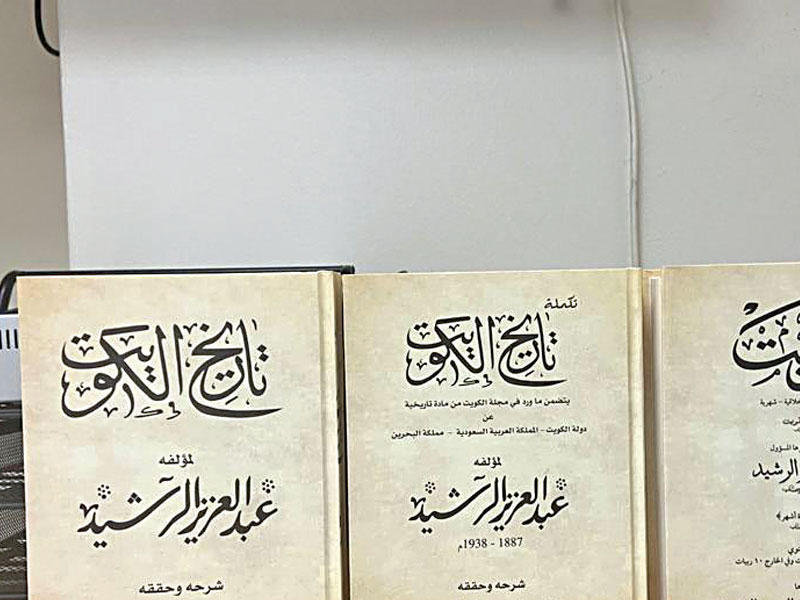 تاريخ الكويت
لمؤلفه
عبدالعزيز الرشيد
شرحه وحققه
تكملة
تاريخ الكويت
يتضمن ما ورد في مجلة الكويت من مادة تاريخية
عن
دولة الكويت - المملكة العربية السعودية - مملكة البحرين
لمؤلفه
عبدالعزيز الرشيد
1887 - 1938م
شرحه وحققه
شهرية
المسؤول
الرشيد
أشهر
وفي الخارج ١٠ ربيات